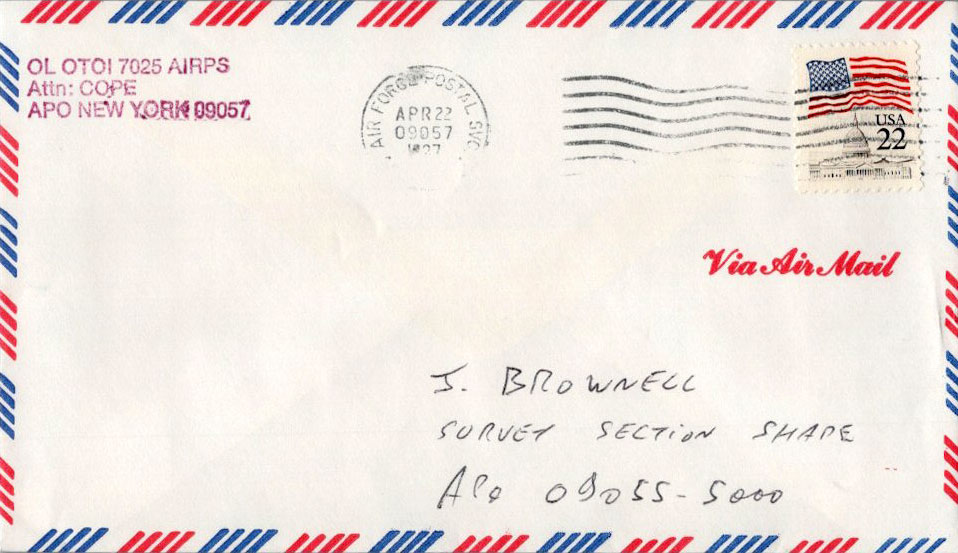 OL OTOI 7025 AIRPS
Attn: COPE
APO NEW YORK 09057
AIR FORCE POSTAL SVC
APR 22
09057
USA
22
Via Air Mail
J. BROWNELL
SURVEY SECTION SHAPE
APO 09055-5000